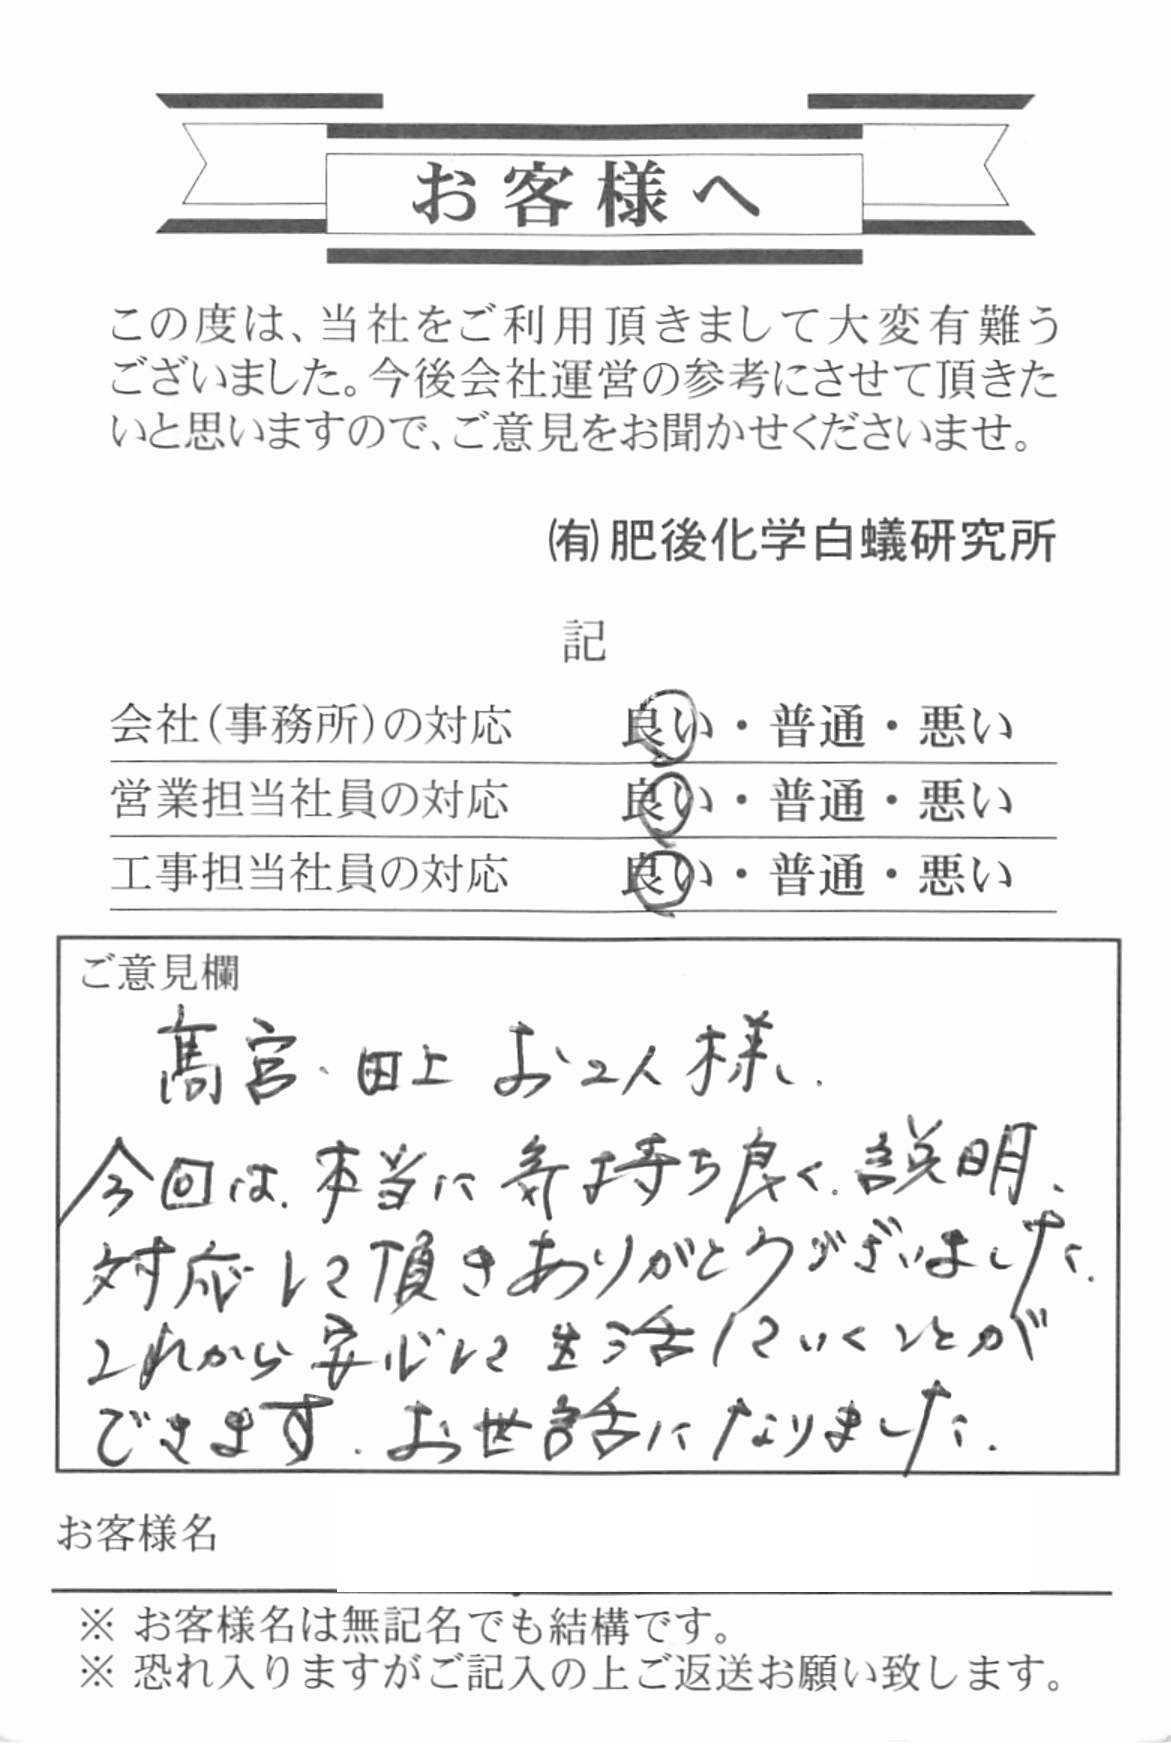 お客様へ
この度は、当社をご利用頂きまして大変有難う
ございました。今後会社運営の参考にさせて頂きた
いと思いますので、ご意見をお聞かせくださいませ。
㈲肥後化学白蟻研究所
記
会社(事務所)の対応 良い・普通・悪い
営業担当社員の対応 良い・普通・悪い
工事担当社員の対応 良い・普通・悪い
ご意見欄
髙宮、田上 お2人様、
今回は、本当に気持ち良く、説明、
対応して頂きありがとうございました。
これから安心して生活していくことが
できます。お世話になりました。
お客様名
※ お客様名は無記名でも結構です。
※ 恐れ入りますがご記入の上ご返送お願い致します。